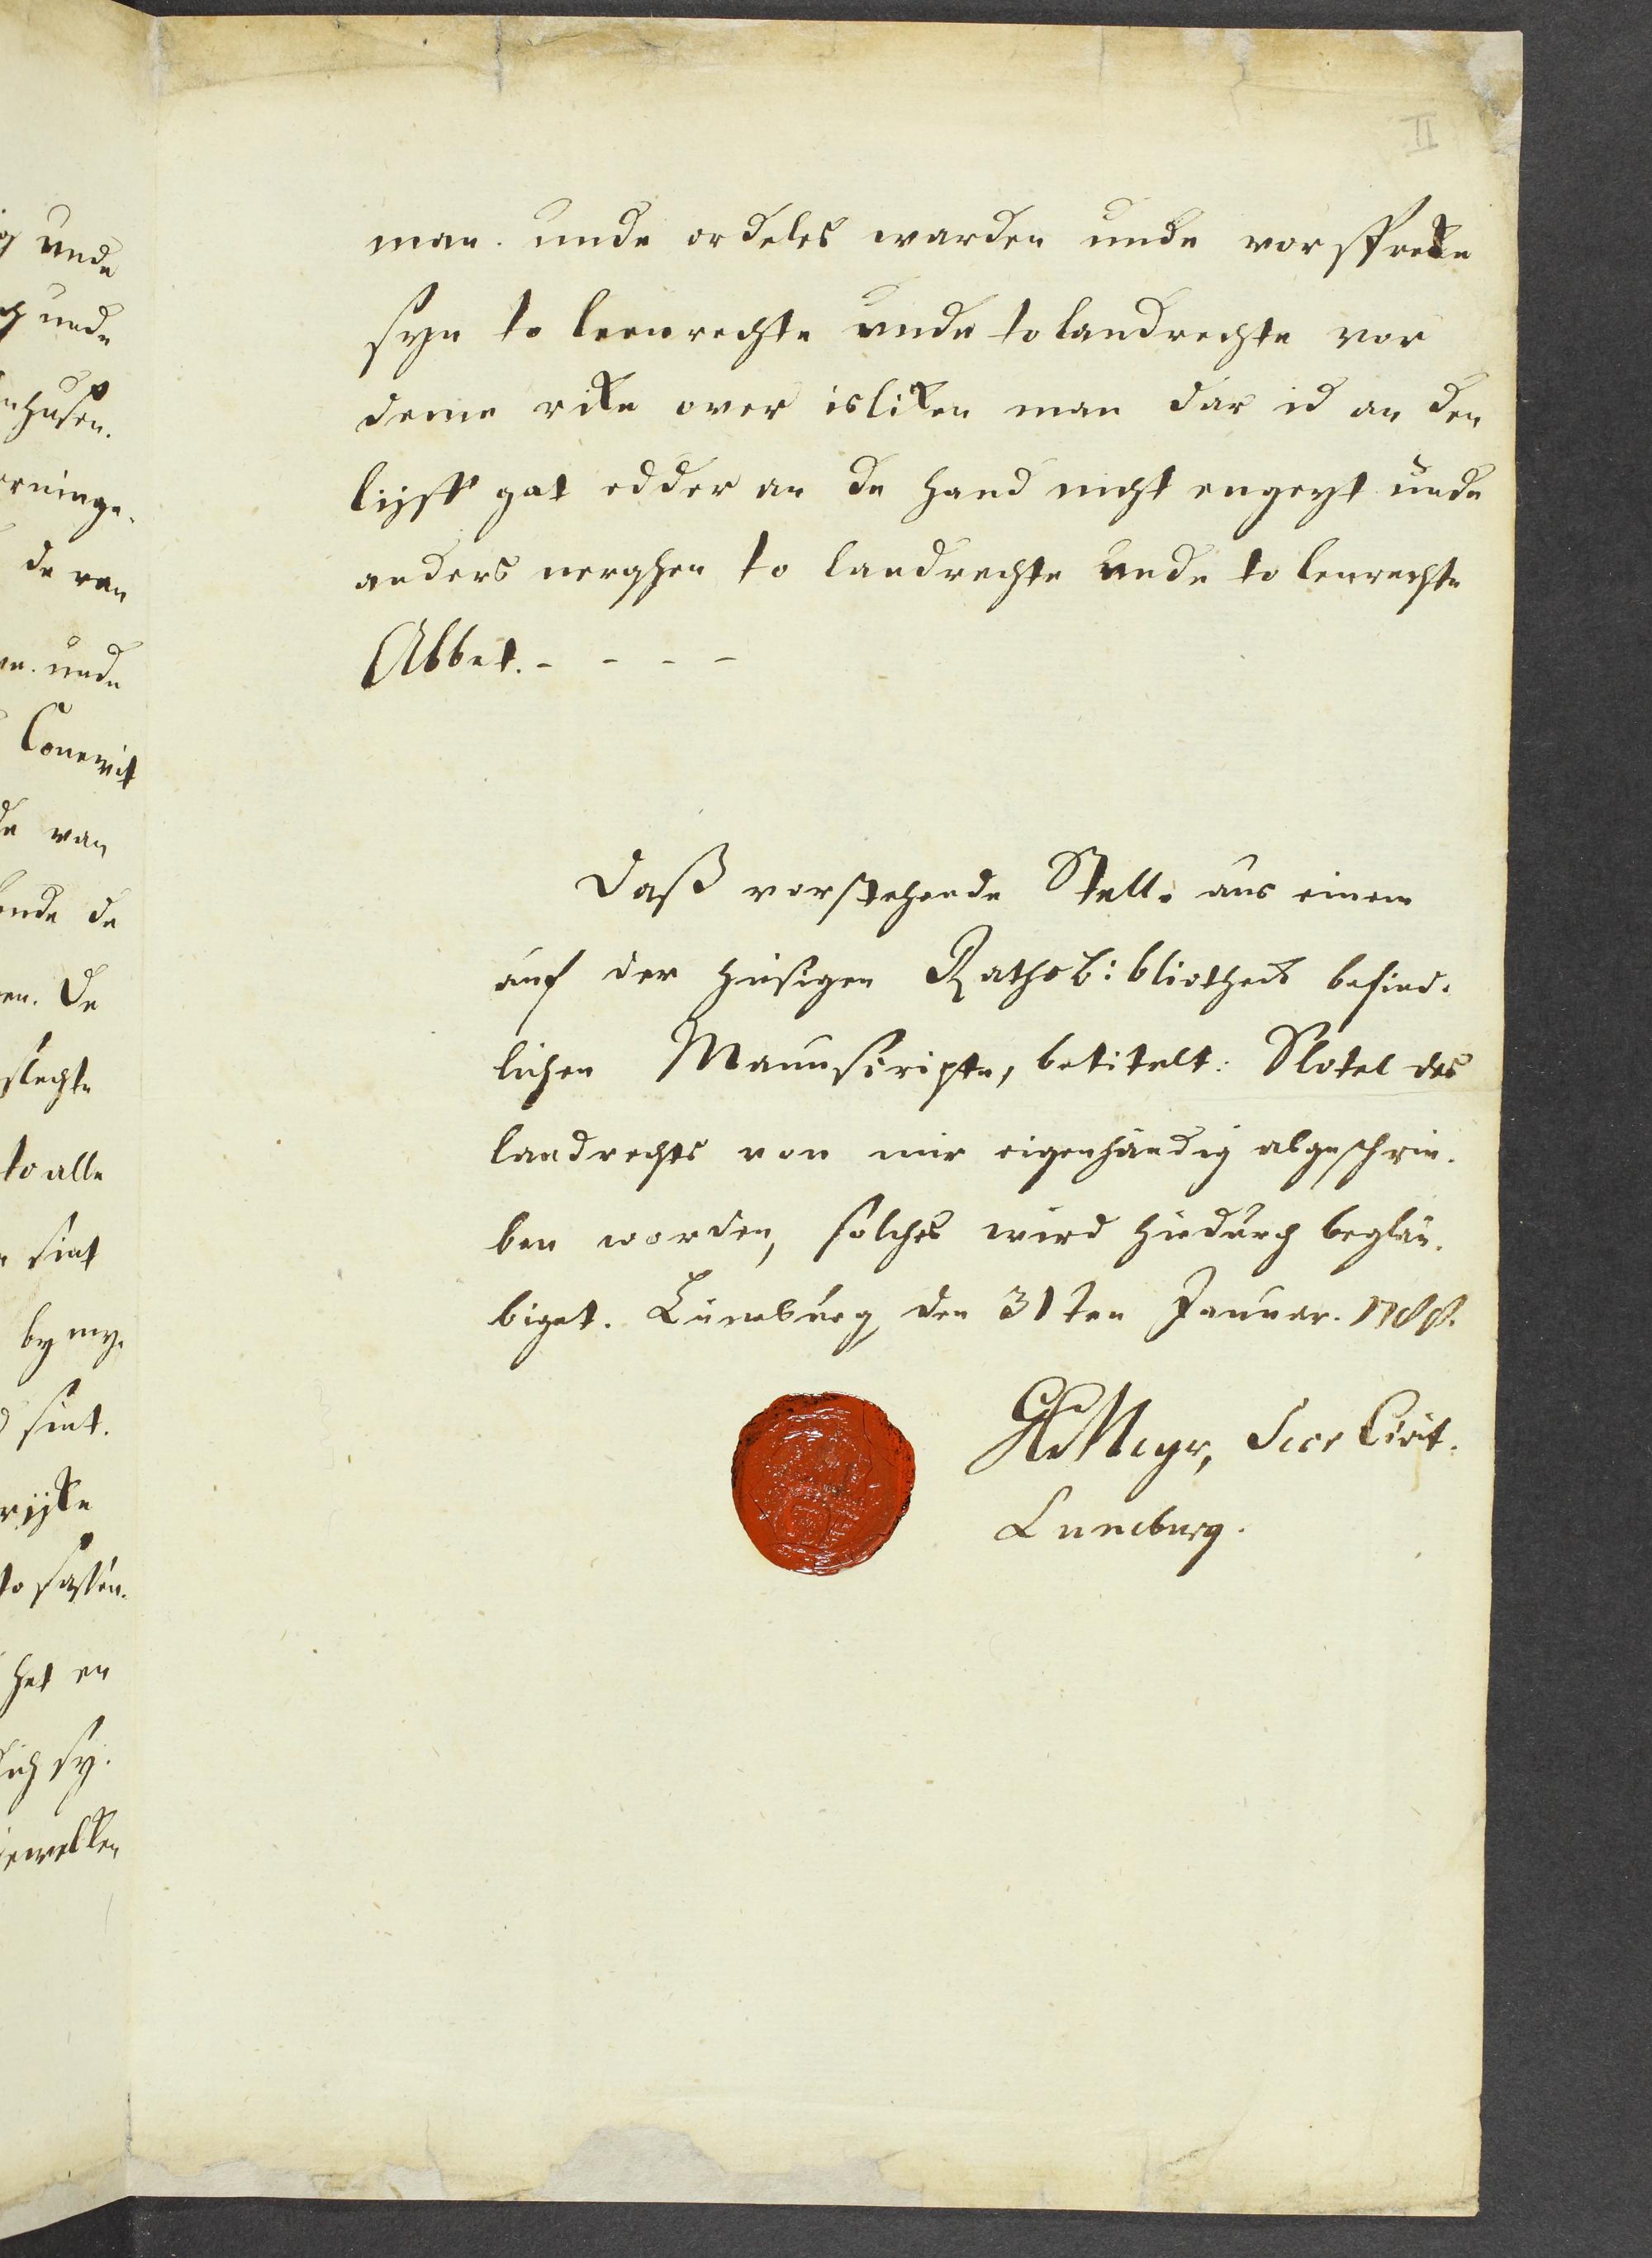 II
man. unde ordeles warden unde vorspreke
syn to leenrechte unde to landrechte vor
deme rike over isliken man dar id an den
lijff gat edder an de hand nicht engeyt unde
anders nerghen to landrechte unde to lenrechte
Abbet. - - - -
Daß vorstehende Stelle aus einem
auf der hiesigen Rathsbibliotheck befind-
lichen Manuscripte, betitelt: Slotel des
landrechts von mir eigenhändig abgeschrie-
ben worden, solches wird hiedurch beglau-
biget. Lüneburg den 31ten Januar. 1788.
Meyr, Secr Civit.
Luneburg.
unde
unde
husen.
ringe.
de van
unde
Conevit
de van
ende de
en. De
slechte
to alle
sint
by my.
sint.
rijke
to sassen.
het en
sich sy.